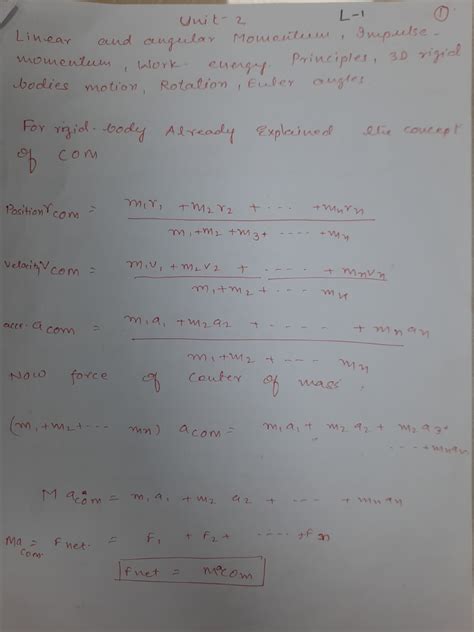 Unit-2 L-1 ①
Linear and angular Momentum, Impulse-
momentum, Work-energy Principles, 3D rigid
bodies motion, Rotation, Euler angles
For rigid-body Already Explained the concept
of COM
Position r com = m1r1 + m2r2 + ---- + mnrn
m1+m2+m3+ ---- + mn
Velocity V com = m1v1 + m2v2 + ---- + mnvn
m1+m2+ ---- mn
accr. a com = m1a1 + m2a2 + ---- + mn an
m1+m2+ ---- mn
Now force of center of mass.
(m1+m2+--- mn) acom = m1a1 + m2a2 + m2a3
---+mnan
M acom = m1a1 + m2 a2 + ---- + mnan
Ma com = Fnet = F1 + F2 + ---- + Fn
Fnet = Macom